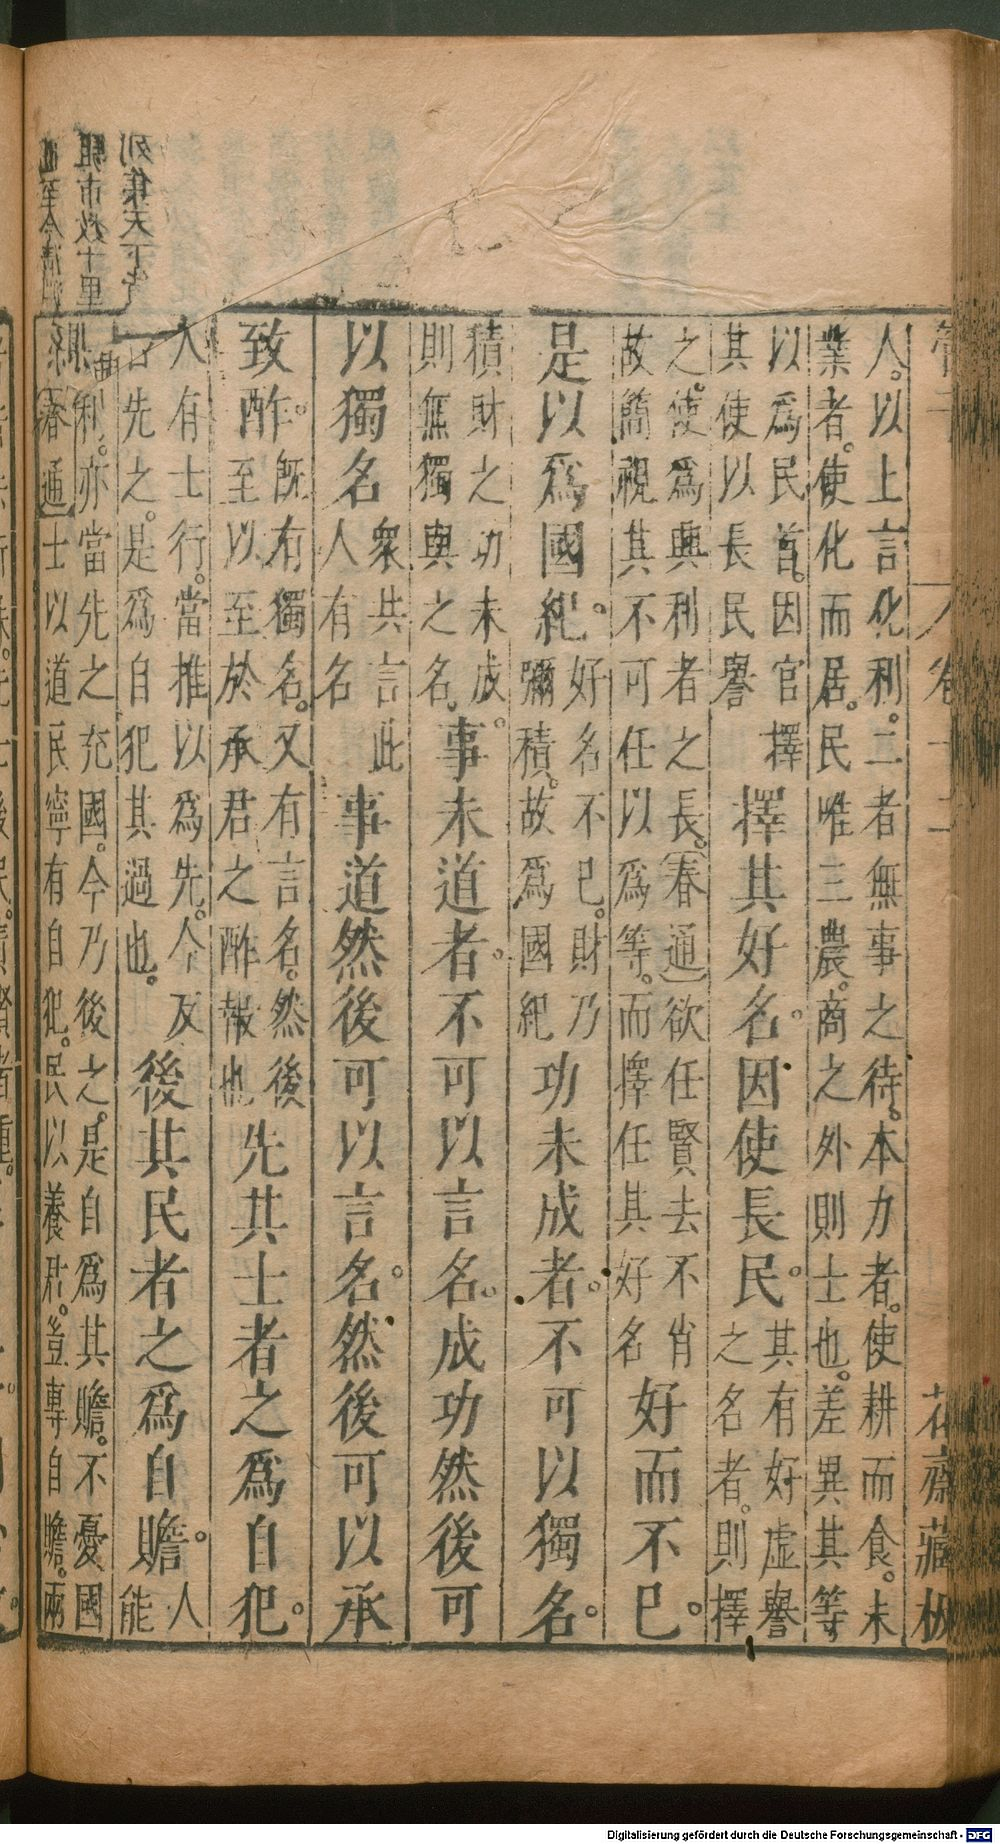 管子 卷十二 花齋藏板
人。以上言化利。二者無事之待。本力者。使耕而食。未
業者。使化而居。民唯三農。商之外則士也。差異其等
以爲民首。因官擇
其使以長民譽
擇其好名。因使長民。
其有好虛譽
之名者。則擇
之。使爲興利者之長。春通欲任賢去不肖
故簡視其不可任以爲等。而擇任其好名
好而不已。
是以爲國紀。
好名不已。財乃
彌積。故爲國紀
功未成者。不可以獨名。
積財之功未成。
則無獨與之名。
事未道者。不可以言名。成功然後可
以獨名
衆共言此
人有名
事道然後可以言名。然後可以承
致酢。
旣有獨名。又有言名。然後
至以至於承君之酢報也
先其士者之爲自犯。
人有士行。當推以爲先。今反
先之。是爲自犯其過也。
後其民者之爲自贍。
人
能
利。亦當先之充國。今乃後之。是自爲其贍。不憂國
春通士以道民寧有自犯。民以養君。豈專自贍。兩
列集天下
市數十里
至今
Digitalisierung gefördert durch die Deutsche Forschungsgemeinschaft - DFG